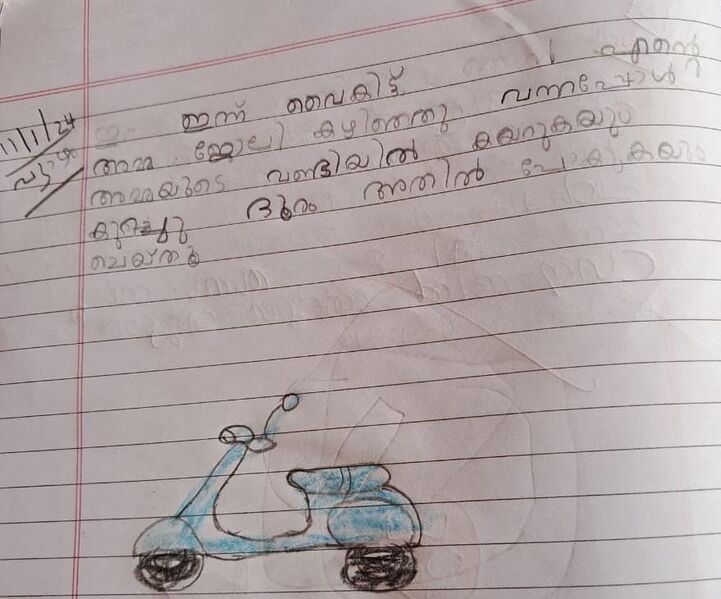 11/1/24
വ്യാഴം
ഇന്ന് വൈകിട്ട് എന്റെ
അമ്മ ജോലി കഴിഞ്ഞു വന്നപ്പോൾ
അമ്മയുടെ വണ്ടിയിൽ കയറുകയും
കുറച്ചു ദൂരം അതിൽ പോകുകയും
ചെയ്തു